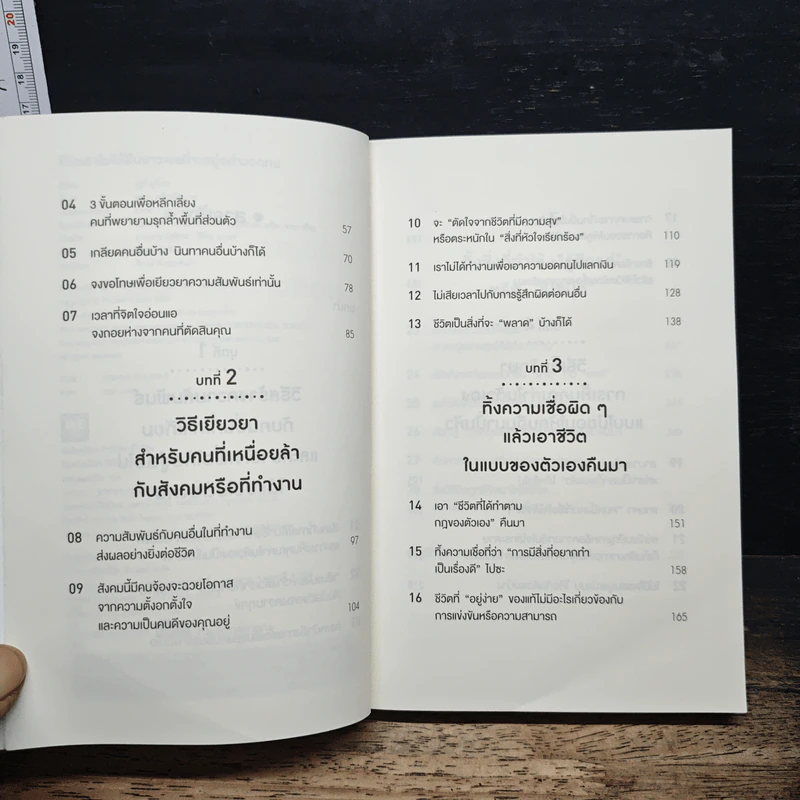 20
19
18
17
04 3 ขั้นตอนเพื่อหลีกเลี่ยง
คนที่พยายามรุกล้ำพื้นที่ส่วนตัว 57
05 เกลียดคนอื่นบ้าง นินทาคนอื่นบ้างก็ได้ 70
06 จงขอโทษเพื่อเยียวยาความสัมพันธ์เท่านั้น 78
07 เวลาที่จิตใจอ่อนแอ
จงถอยห่างจากคนที่ตัดสินคุณ 85
บทที่ 2
วิธีเยียวยา
สำหรับคนที่เหนื่อยล้า
กับสังคมหรือที่ทำงาน
08 ความสัมพันธ์กับคนอื่นในที่ทำงาน
ส่งผลอย่างยิ่งต่อชีวิต 97
09 สังคมนี้มีคนจ้องจะฉวยโอกาส
จากความตั้งอกตั้งใจ
และความเป็นคนดีของคุณอยู่ 104
10 จะ "ตัดใจจากชีวิตที่มีความสุข"
หรือตระหนักใน "สิ่งที่หัวใจเรียกร้อง" 110
11 เราไม่ได้ทำงานเพื่อเอาความอดทนไปแลกเงิน 119
12 ไม่เสียเวลาไปกับการรู้สึกผิดต่อคนอื่น 128
13 ชีวิตเป็นสิ่งที่จะ "พลาด" บ้างก็ได้ 138
บทที่ 3
ทิ้งความเชื่อผิด ๆ
แล้วเอาชีวิต
ในแบบของตัวเองคืนมา
14 เอา "ชีวิตที่ได้ทำตาม
กฎของตัวเอง" คืนมา 151
15 ทิ้งความเชื่อที่ว่า "การมีสิ่งที่อยากทำ
เป็นเรื่องดี" ไปซะ 158
16 ชีวิตที่ "อยู่ง่าย" ของแท้ไม่มีอะไรเกี่ยวข้องกับ
การแข่งขันหรือความสามารถ 165